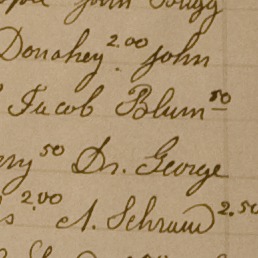 John
Donahey 2.00 John
Jacob Blum 50
50 Dr. George
2.00 A. Schrum 2.50